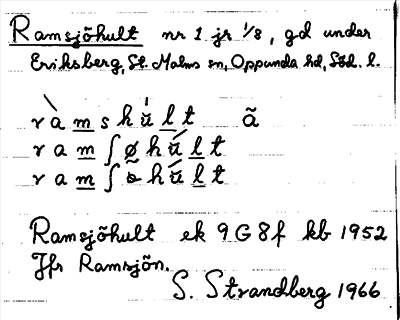 Ramsjöhult nr 1 jr 1/8, gd under
Eriksberg, St. Malms sn, Oppunda hd, Söd. l.
ràmshult ã
ramʃøhúlt
ramʃɵhúlt
Ramsjöhult ek 9G8f kb 1952
Jfr Ramsjön.
S. Strandberg 1966